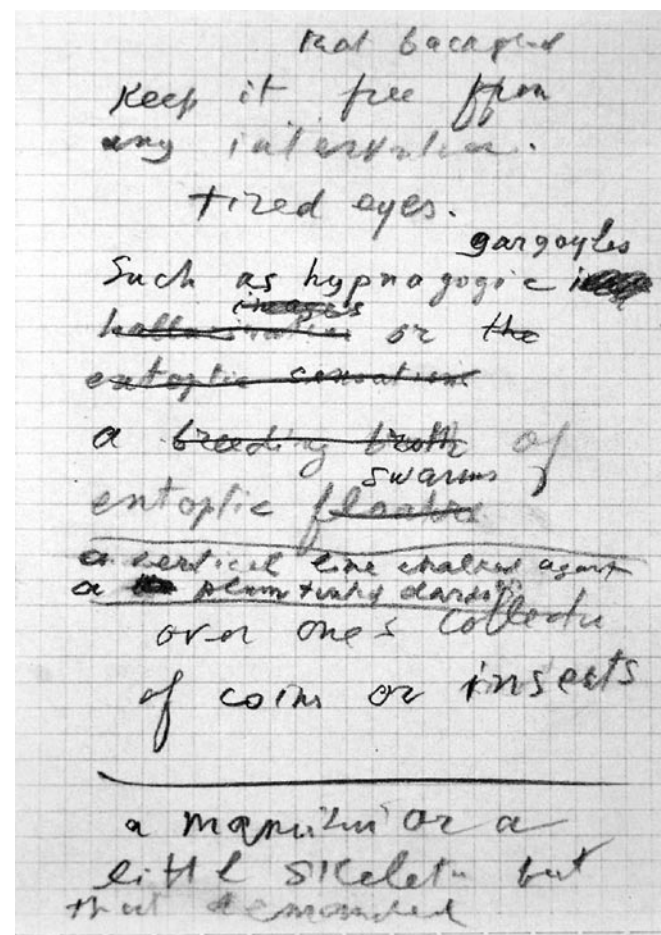 that
Keep it free from
any
tired eyes.
gargoyles
Such as hypnagogic
images
hallucination or the
entoptic sensations
a breeding broth of
swarms
entoptic
a vertical line chalked against
a plum tinty darkness
over one's collection
of coins or insects
a or a
little skeleton but
that demanded